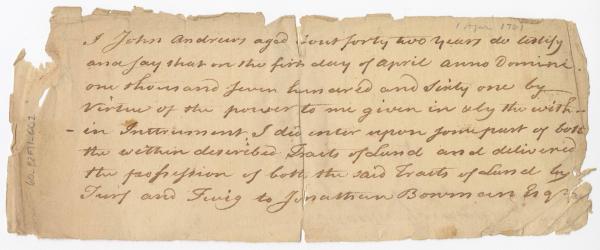 1 Apr 1761
I John Andrews aged 'bout forty two Years do testify
and say that on the first day of April anno Domini
one thousand seven hundred and sixty one by
Virtue of the power to me given in & by the with-
in Instrument, I did enter upon some part of both
the within described Tracts of Land and delivered
the possession of both the said Tracts of Land by
Turf and Twig to Jonathan Bowman Esqr